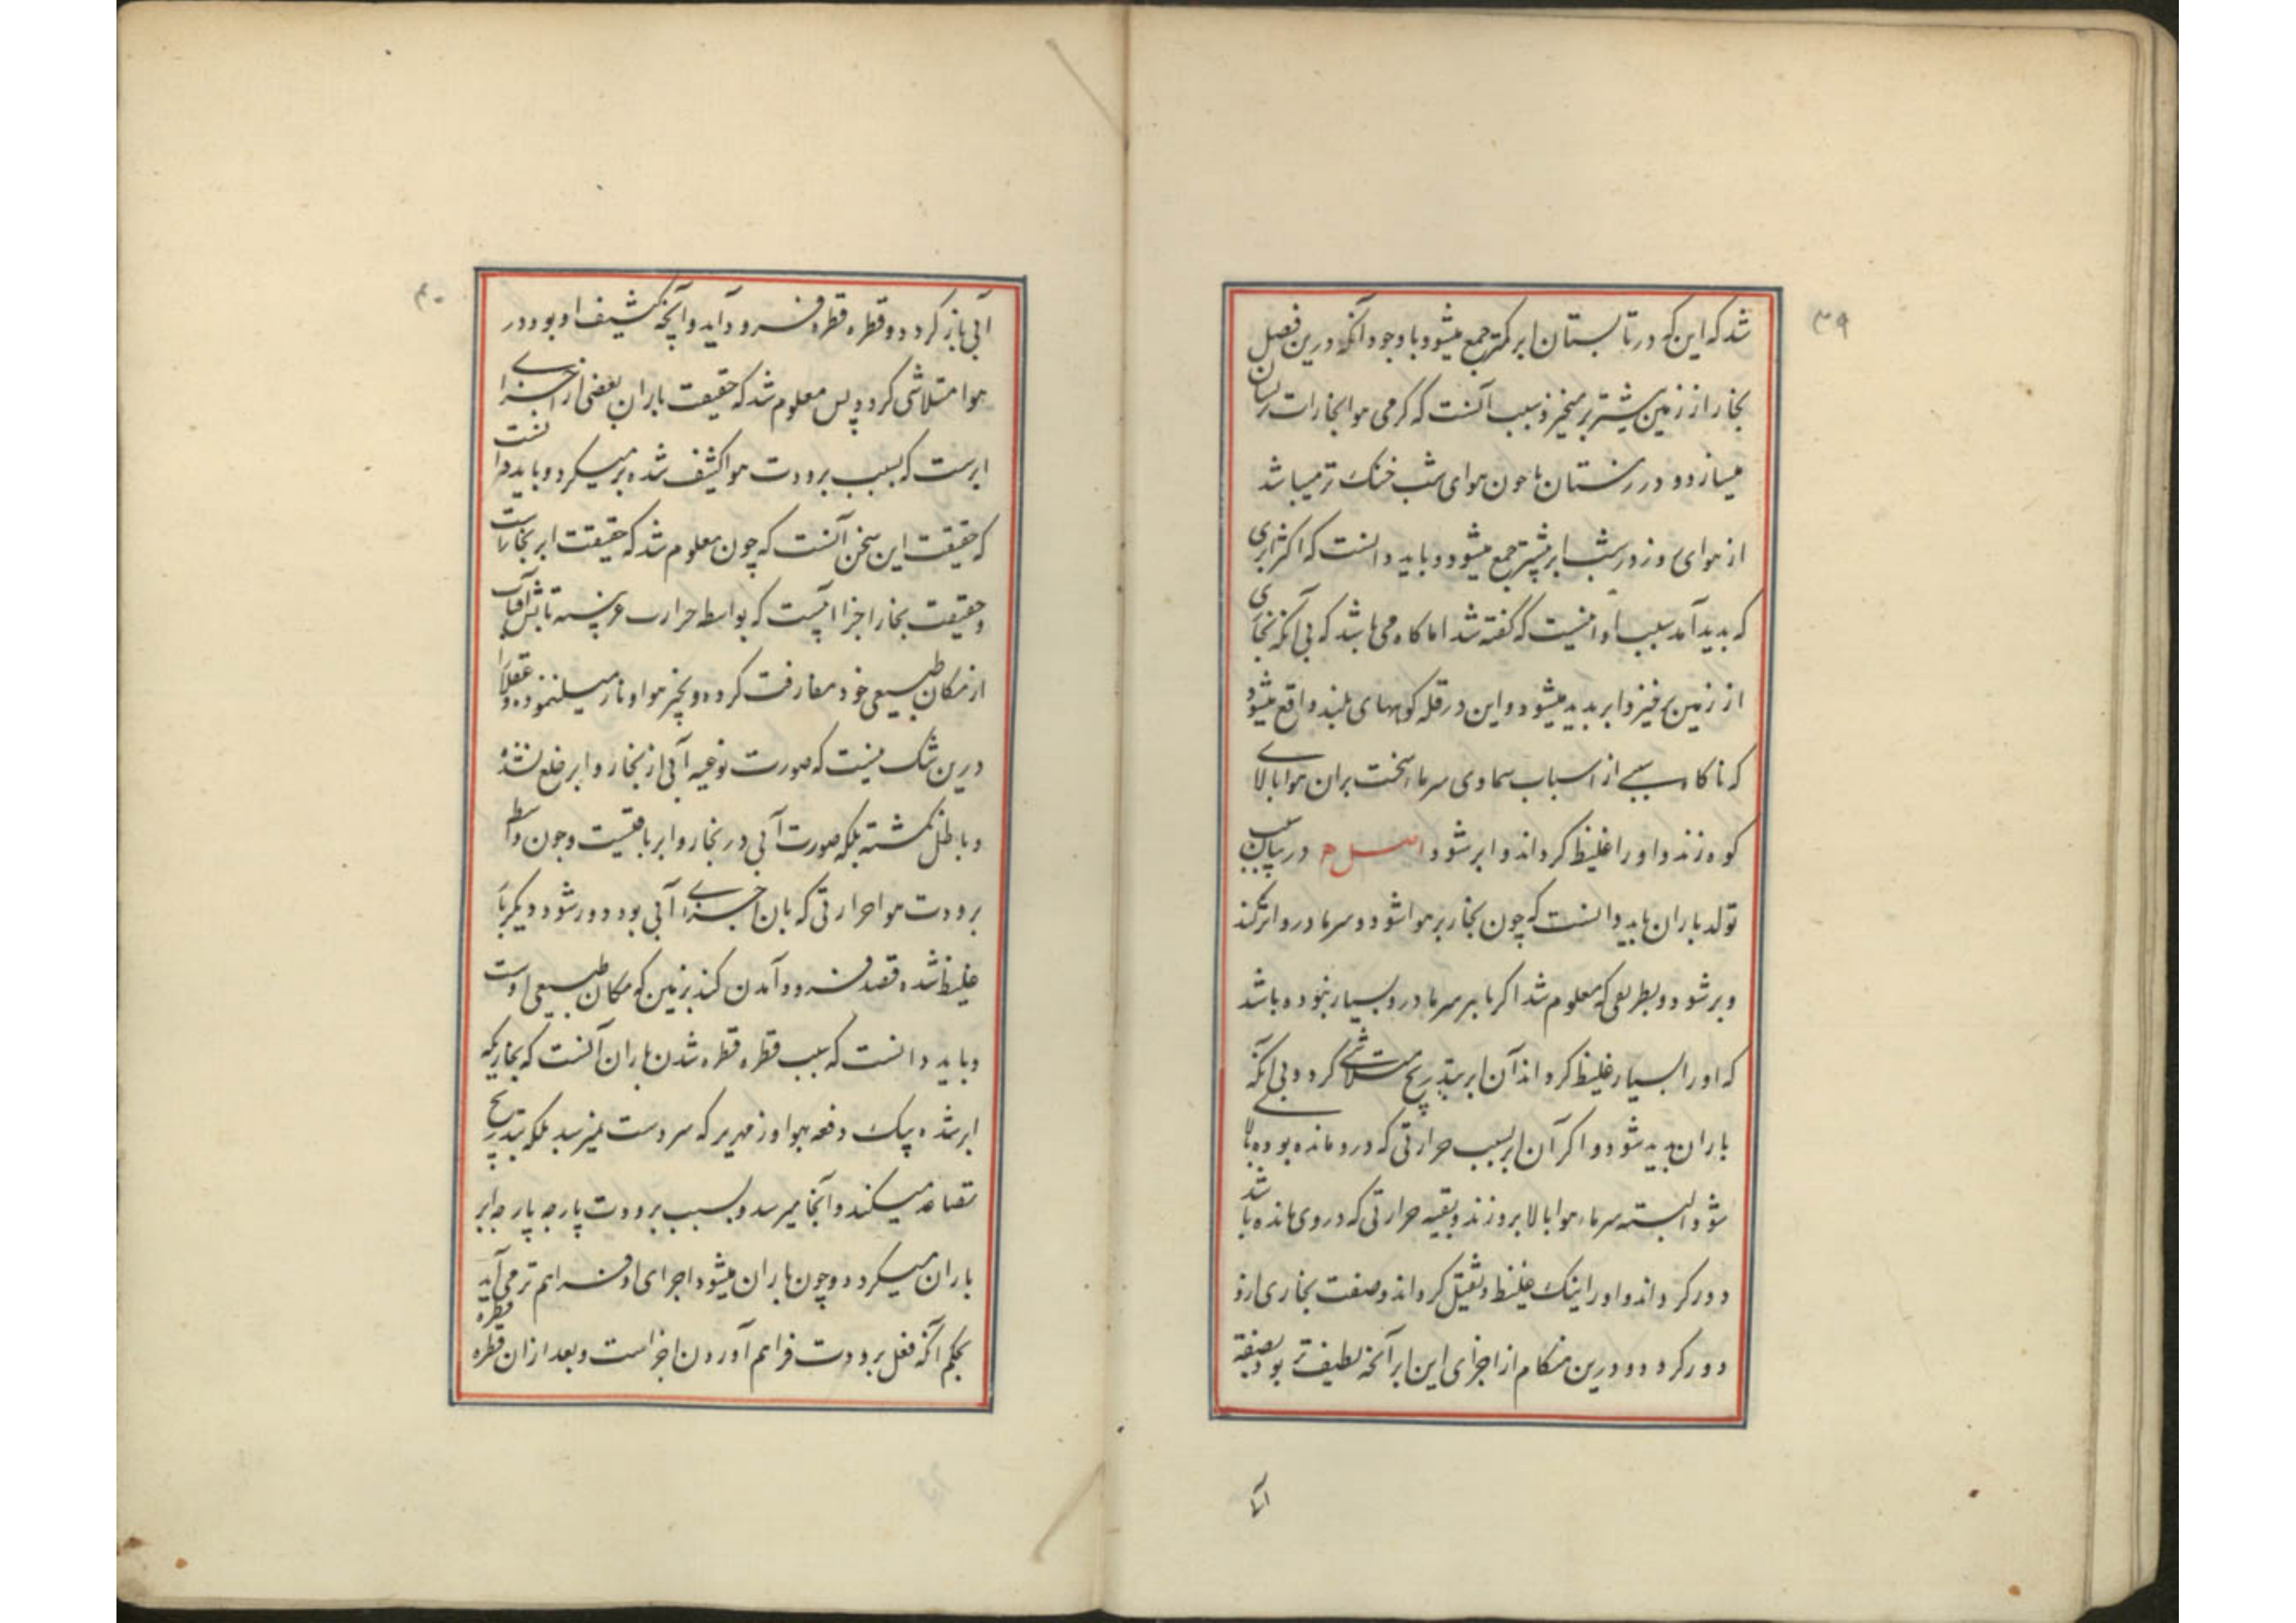 ۳۹
شد که این که در تابستان ابر کمتر جمع میشود با وجود آنکه درین فصل
بخار از زمین بیشتر بر میخیزد سبب آنست که گرمی هوا بخارات
میسازد و در زمستان تا چون هوای شب خنک تر میباشد
از هوای روز در شب ابر بیشتر جمع میشود و باید دانست که اکثر ابری
که پدید آمد سبب او اینست که گفته شد اما گاه می باشد که بی آنکه بخاری
از زمین برخیزد ابر پدید میشود و این در قله کوههای بلند واقع میشود
که ناگاه سببی از اسباب سماوی سرماء سخت بران هوا بالای
کوه زند و او را غلیظ گرداند و ابر شود اصل در بیان سبب
تولد باران باید دانست که چون بخار بر هوا شود و سرما درو اثر کند
و بر شود و بطریقی که معلوم شد اگر تاثیر سرما درو بسیار نبوده باشد
که او را بسیار غلیظ گرداند آن ابر بتدریج متلاشی گردد بی آنکه
باران پدید شود و اگر آن ابر بسبب حرارتی که درو مانده بوده بالا
شود البته سرماء هوا بالا برو زند و بقیه حرارتی که در وی مانده باشد
دور گرداند و او را اینک غلیظ و ثقیل گرداند و صفت بخاری ازو
دور گردد و درین هنگام از اجزای این ابر آنچه لطیف تر بود بصفة
آبی
۴۰
آبی باز گردد و قطره قطره فرود آید و آنچه کثیف او بود در
هوا متلاشی گردد پس معلوم شد که حقیقت باران بعضی از اجزای
ابرست که بسبب برودت هوا کثیف شده بر میگردد و باید دانست
که حقیقت این سخن آنست که چون معلوم شد که حقیقت ابر بخارات
و حقیقت بخار اجزا آبیست که بواسطه حرارت غریبه تابش آفتاب
از مکان طبیعی خود مفارقت کرده و بحیز هوا و نار میل نموده و عقلا را
درین شک نیست که صورت نوعیه آبی از بخار و ابر خلع نشده
و باطل نگشته بلکه صورت آبی در بخار و ابر باقیست و چون بواسطه
برودت هوا حرارتی که بان اجزای آبی بود دور شود دیگر بار
غلیظ شده قصد فرود آمدن کند بزمین که مکان طبیعی اوست
و باید دانست که سبب قطره قطره شدن باران آنست که بخاریکه
ابر شده بیک دفعه بهواء زمهریر که سردست نمیرسد بلکه بتدریج
تصاعد میکند و آنجا میرسد و بسبب برودت پارچه پارچه ابر
باران میگردد و چون باران میشود اجزای او فراهم تر می آید
بحکم آنکه فعل برودت فراهم آوردن اجزاست و بعد ازان قطره قطره